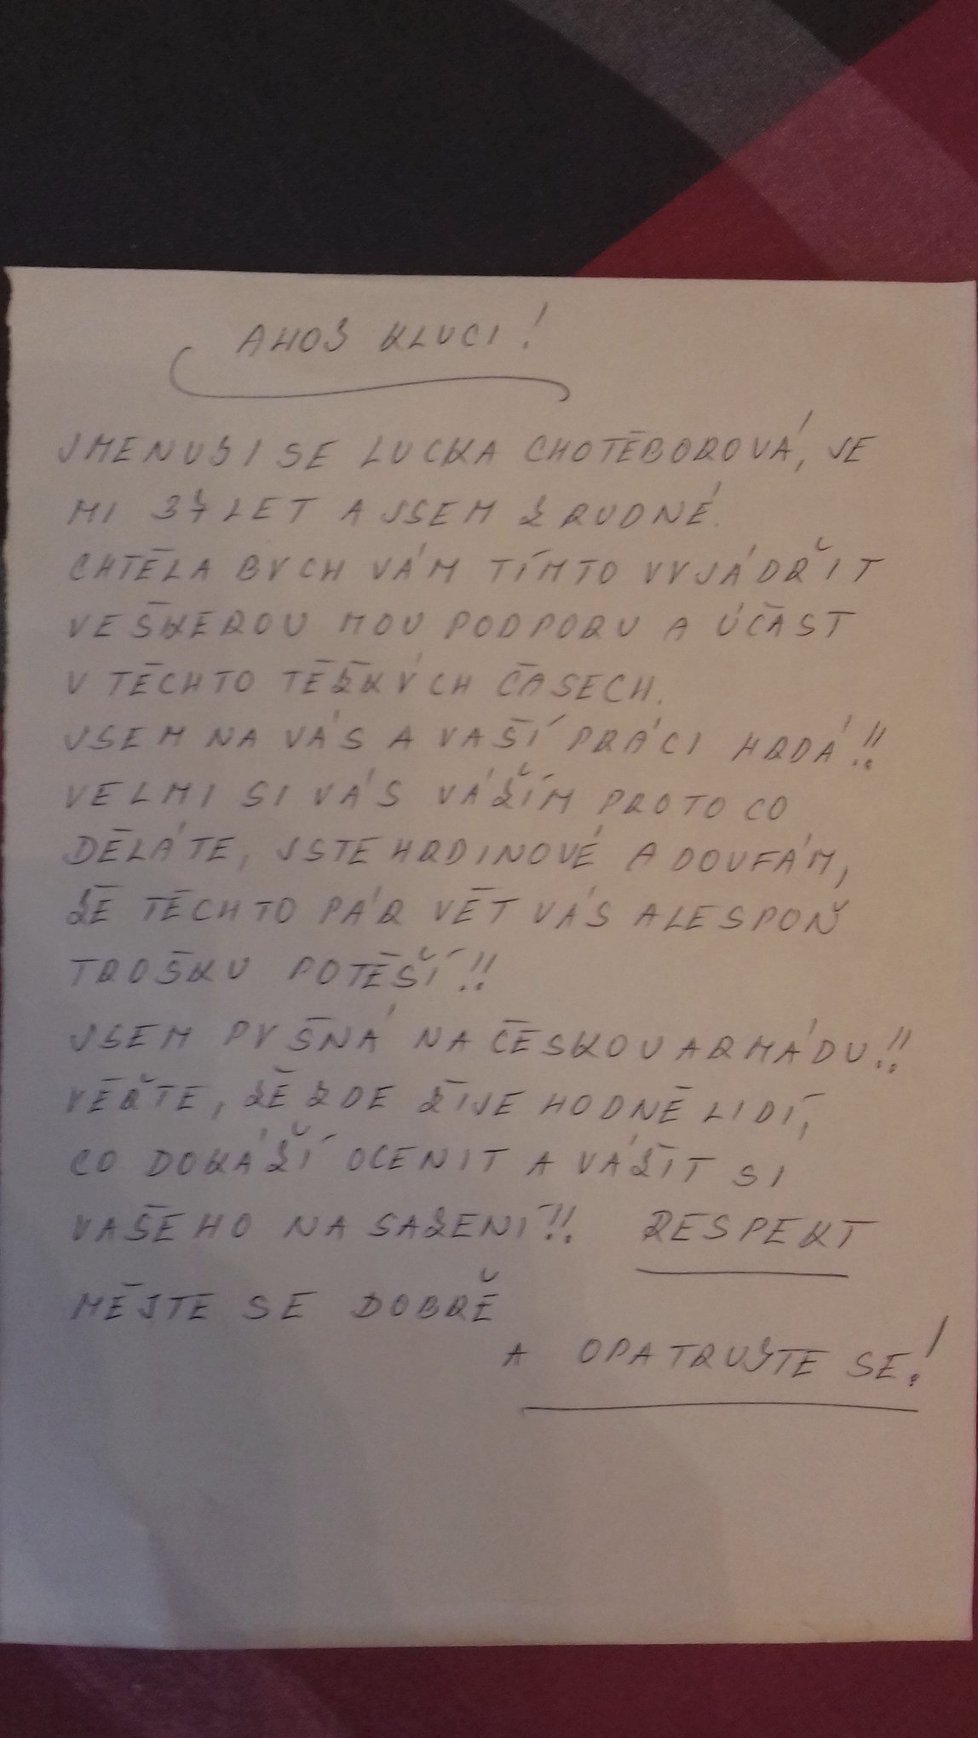 AHOJ KLUCI!
JMENUJI SE LUCKA CHOTĚBOROVÁ, JE
MI 37 LET A JSEM Z RUDNÉ.
CHTĚLA BYCH VÁM TÍMTO VYJÁDŘIT
VEŠKEROU MOU PODPORU A ÚČAST
V TĚCHTO TĚŽKÝCH ČASECH.
JSEM NA VÁS A VAŠÍ PRÁCI HRDÁ!!
VELMI SI VÁS VÁŽÍM PROTO CO
DĚLÁTE, JSTE HRDINOVÉ A DOUFÁM,
ŽE TĚCHTO PÁR VĚT VÁS ALESPOŇ
TROŠKU POTĚŠÍ!!
JSEM PYŠNÁ NA ČESKOU ARMÁDU!!
VĚŘTE, ŽE ZDE ŽIJE HODNĚ LIDÍ,
CO DOKÁŽÍ OCENIT A VÁŽIT SI
VAŠEHO NASAZENÍ!! RESPEKT
MĚJTE SE DOBŘE
A OPATRUJTE SE!